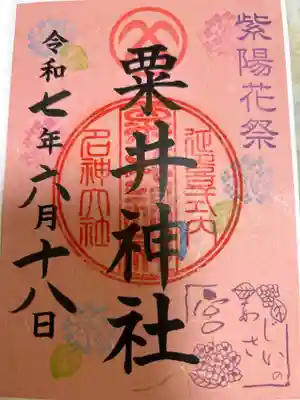 紫陽花祭
延喜式内
粟井神社
名神大社
令和七年六月十八日
あじさいの
宮